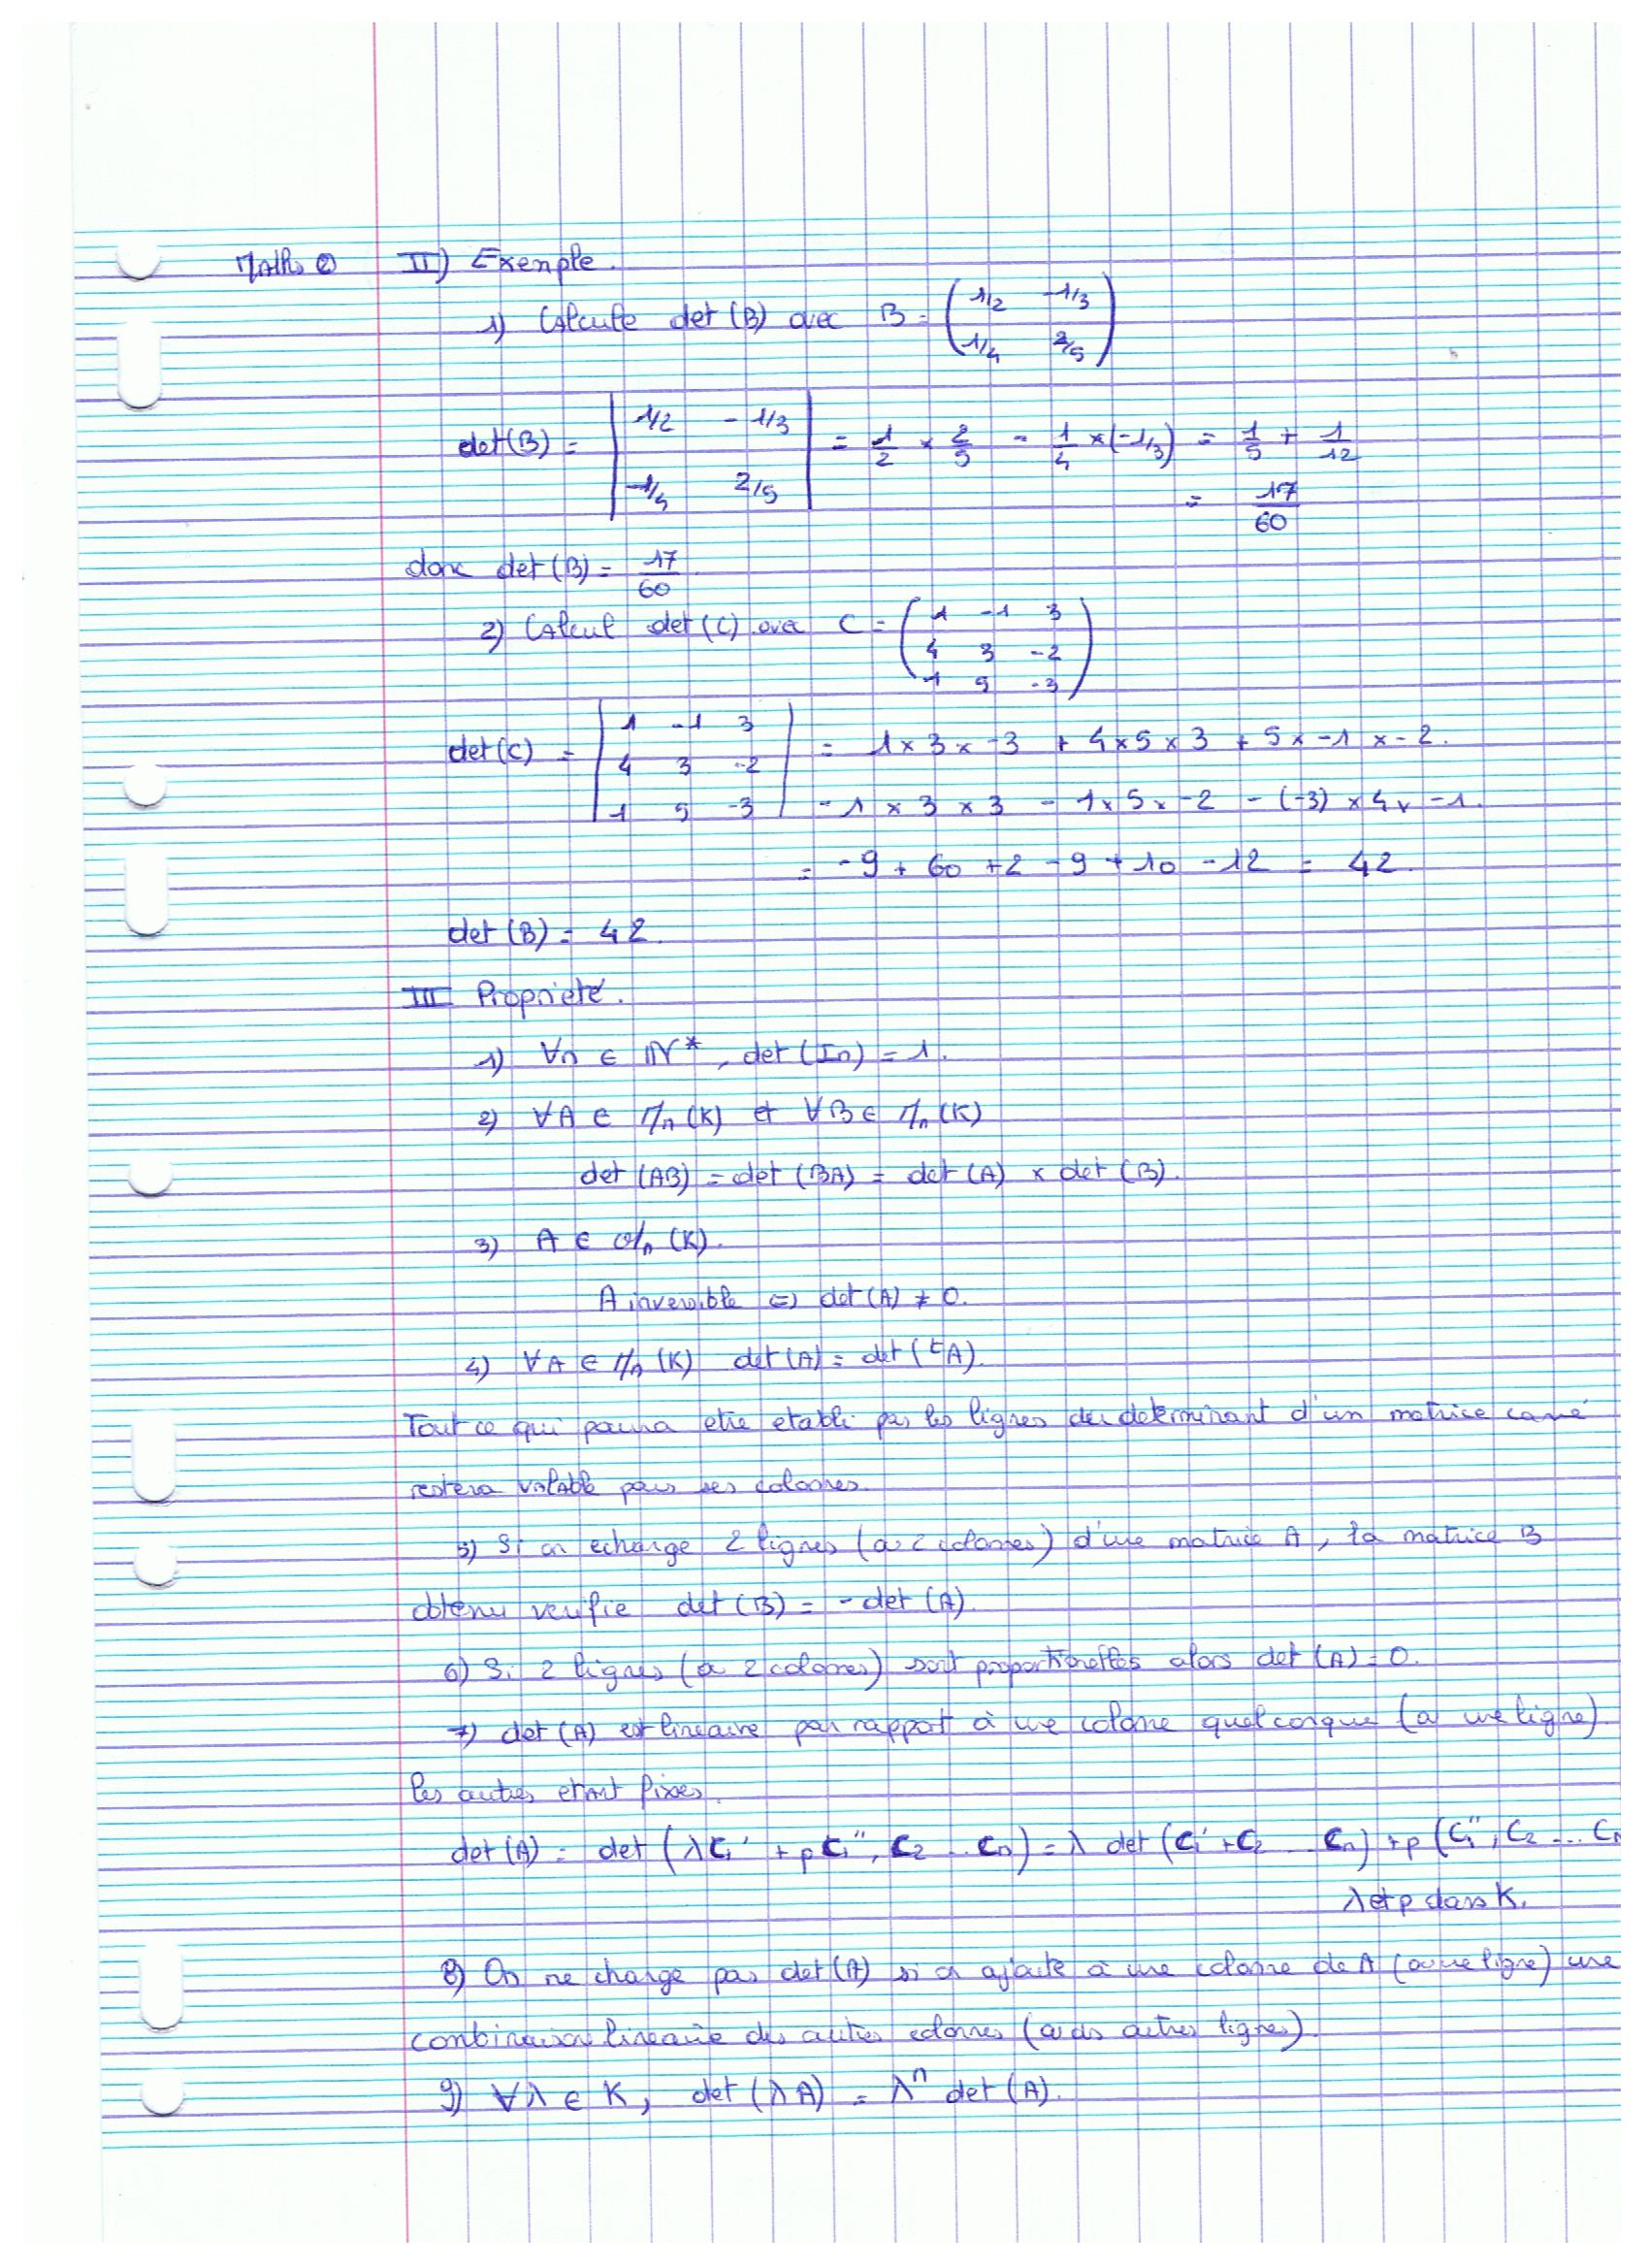 Maths ② II) Exemple.
1) Calcule det (B) avec B = ( 1/2 -1/3
1/4 2/5 )
det(B) = | 1/2 - 1/3
1/4 2/5 | = 1/2 × 2/5 - 1/4 × (-1/3) = 1/5 + 1/12
= 17/60
donc det (B) = 17/60
2) Calcul det (C) avec C = ( 1 -1 3
4 3 -2
1 5 -3 )
det(C) = | 1 -1 3
4 3 -2
1 5 -3 | = 1 × 3 × -3 + 4 × 5 × 3 + 5 × -1 × -2.
- 1 × 3 × 3 - 1 × 5 × -2 - (-3) × 4 × -1.
= -9 + 60 + 2 - 9 + 10 - 12 = 42.
det (B) = 42.
III Propriete.
1) ∀n ∈ IN*, det (In) = 1.
2) ∀A ∈ Mn (K) et ∀B ∈ Mn (K)
det (AB) = det (BA) = det (A) × det (B).
3) A ∈ Mn (K).
A inversible ⇔ det (A) ≠ 0.
4) ∀A ∈ Mn (K) det (A) = det (tA).
Tout ce qui pourra etre etabli par les lignes du determinant d'un matrice carré
restera valable pour ses colonnes.
5) Si on echange 2 lignes (ou 2 colonnes) d'une matrice A, la matrice B
obtenu verifie det (B) = - det (A).
6) Si 2 lignes (ou 2 colonnes) sont proportionelles alors det (A) = 0.
7) det (A) est lineaire par rapport à une colonne quelconque (ou une ligne)
les autres etant fixes.
det (A) = det (λC1' + pC1'', C2 .. Cn) = λ det (C1' + C2 .. Cn) + p (C1'', C2 ... Cn
λ et p dans K.
8) On ne change pas det (A) si on ajoute a une colonne de A (ou une ligne) une
combinaison lineaire des autres colonnes (ou des autres lignes).
9) ∀λ ∈ K, det (λA) = λⁿ det (A).